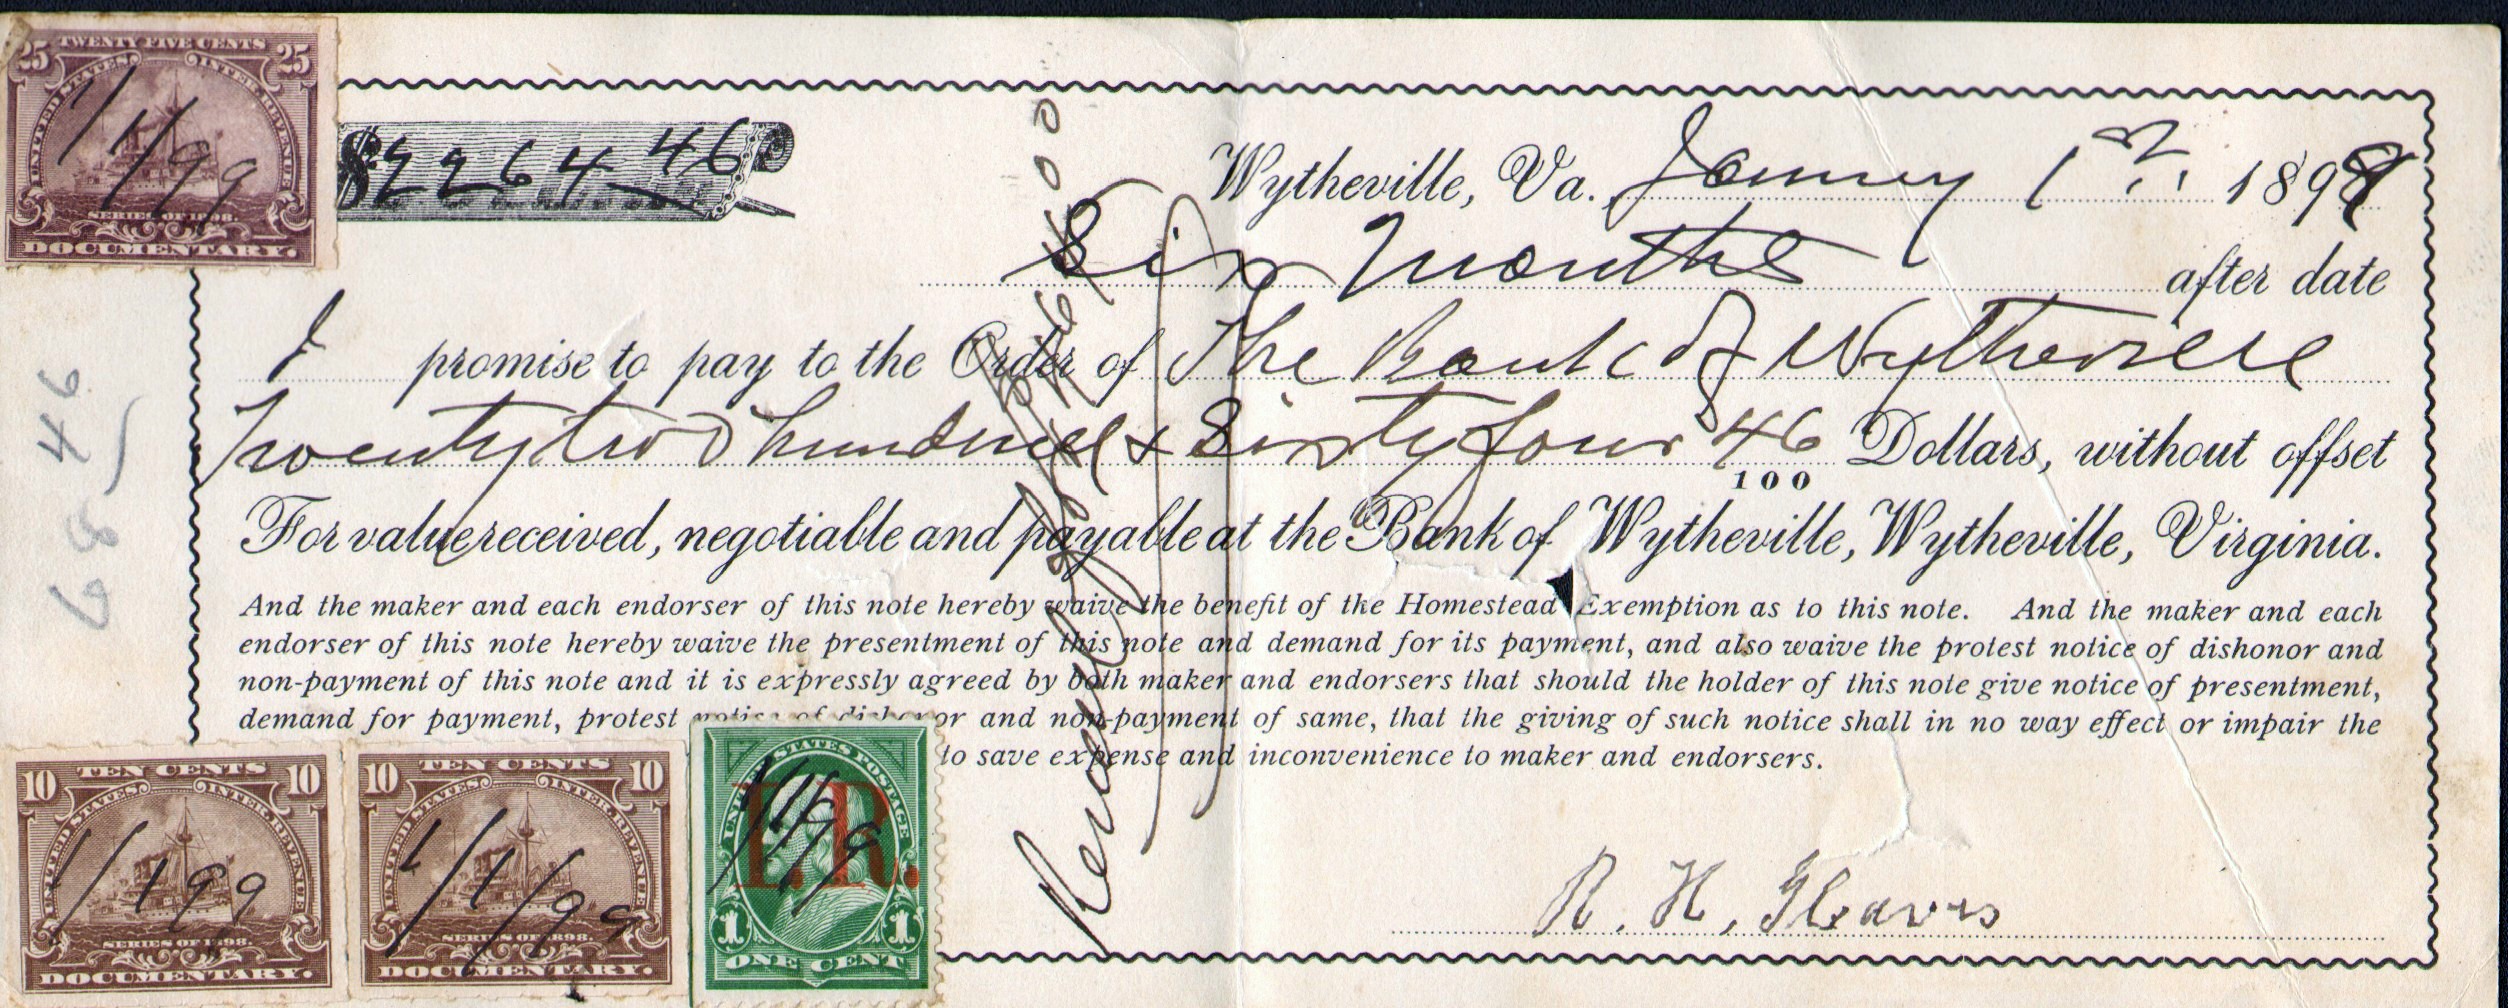 25 TWENTY FIVE CENTS 25
UNITED STATES INTER. REVENUE
1/1/99
SERIES OF 1898.
DOCUMENTARY.
$2264 46
Wytheville, Va. January 1st 1899
Six Months after date
I promise to pay to the Order of The Bank of Wytheville
Twenty two hundred & Sixty four 46/100 Dollars, without offset
For value received, negotiable and payable at the Bank of Wytheville, Wytheville, Virginia.
And the maker and each endorser of this note hereby waive the benefit of the Homestead Exemption as to this note. And the maker and each
endorser of this note hereby waive the presentment of this note and demand for its payment, and also waive the protest notice of dishonor and
non-payment of this note and it is expressly agreed by both maker and endorsers that should the holder of this note give notice of presentment,
demand for payment, protest notice of dishonor and non-payment of same, that the giving of such notice shall in no way effect or impair the
to save expense and inconvenience to maker and endorsers.
Renewal
10 TEN CENTS 10
UNITED STATES INTER. REVENUE
1/1 99
SERIES OF 1898.
DOCUMENTARY.
10 TEN CENTS 10
UNITED STATES INTER. REVENUE
1/1/99
SERIES OF 1898.
DOCUMENTARY.
UNITED STATES POSTAGE
I.R.
1/1/99
1 1
ONE CENT
R. H.